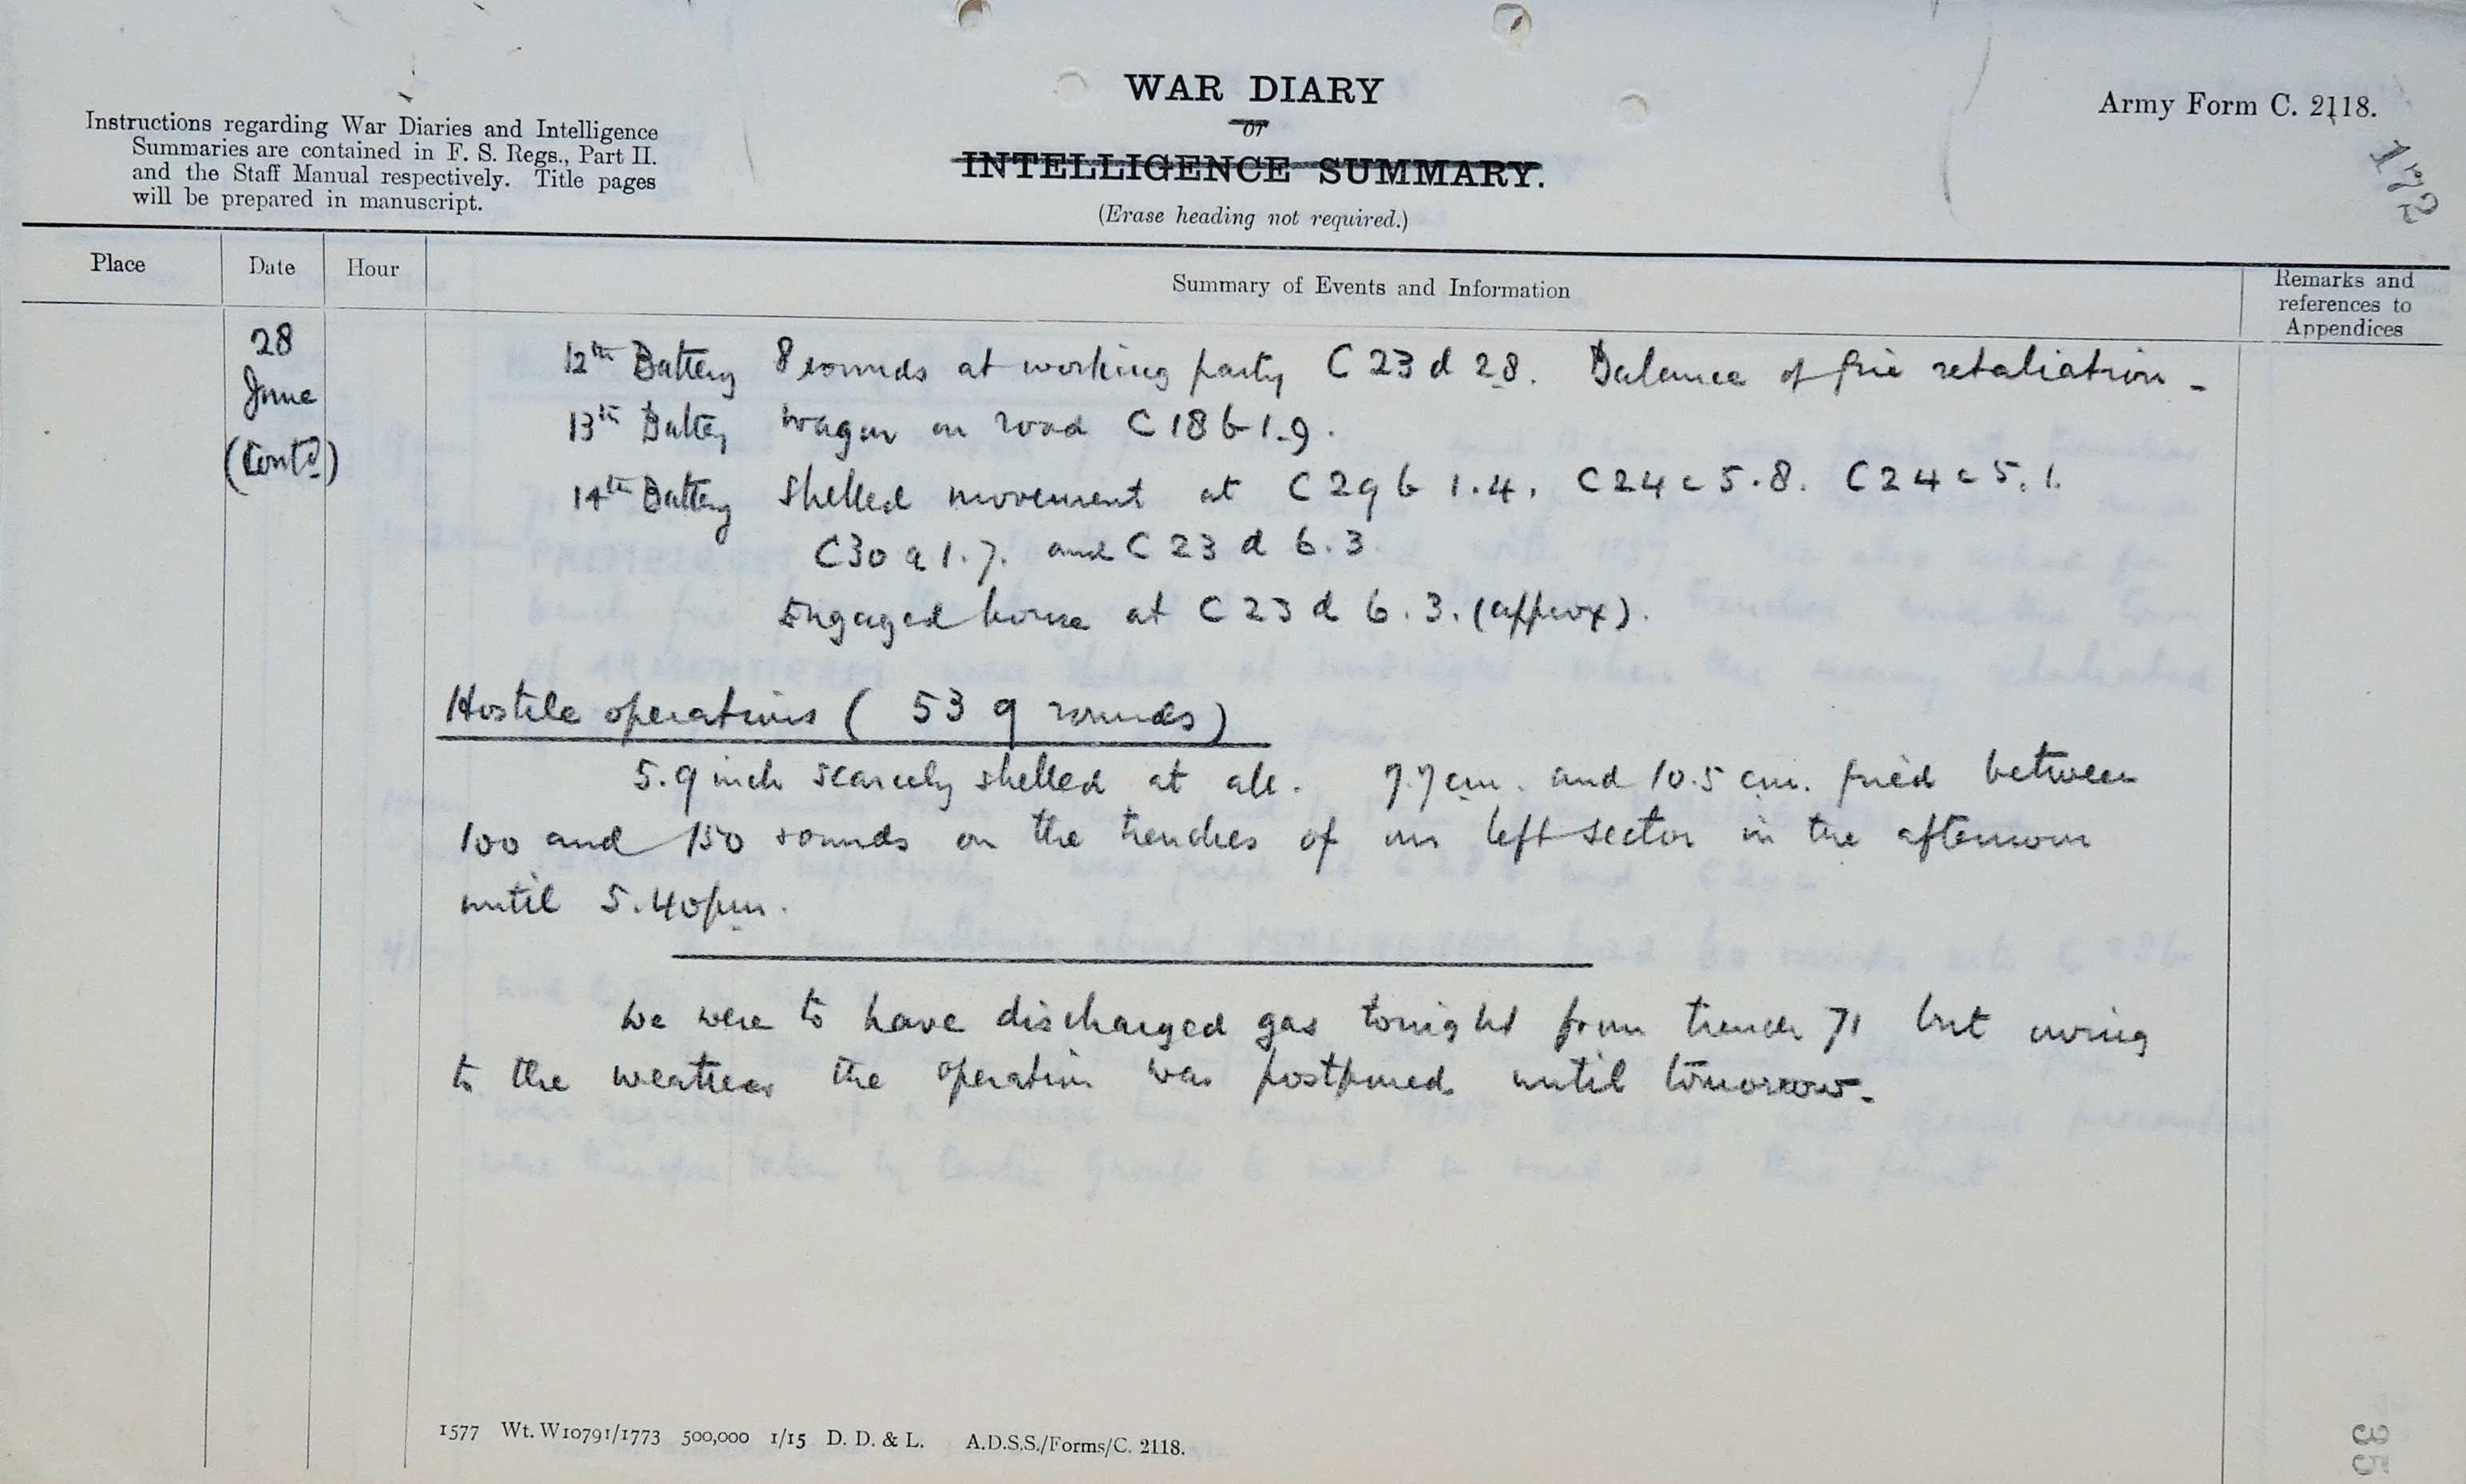 WAR DIARY
or
INTELLIGENCE SUMMARY.
(Erase heading not required.)
Instructions regarding War Diaries and Intelligence
Summaries are contained in F. S. Regs., Part II.
and the Staff Manual respectively. Title pages
will be prepared in manuscript.
Army Form C. 2118.
172
Place
Date
Hour
Summary of Events and Information
Remarks and
references to
Appendices
28
June
(Contd)
12th Battery 8 rounds at working party C 23 d 28. Balance of fire retaliation -
13th Battery Wagon on road C 18 b 1.9.
14th Battery Shelled movement at C 29 b 1.4. C 24 c 5.8. C 24 c 5.1.
C 30 a 1.7. and C 23 d 6.3
Engaged house at C 23 d 6.3. (approx).
Hostile operations (539 rounds)
5.9 inch scarcely shelled at all. 7.7 cm. and 10.5 cm. fired between
100 and 150 rounds on the trenches of our left sector in the afternoon
until 5.40pm.
We were to have discharged gas tonight from trench 71 but owing
to the weather the operation was postponed until tomorrow.
1577 Wt. W10791/1773 500,000 1/15 D. D. & L. A.D.S.S./Forms/C. 2118.
35